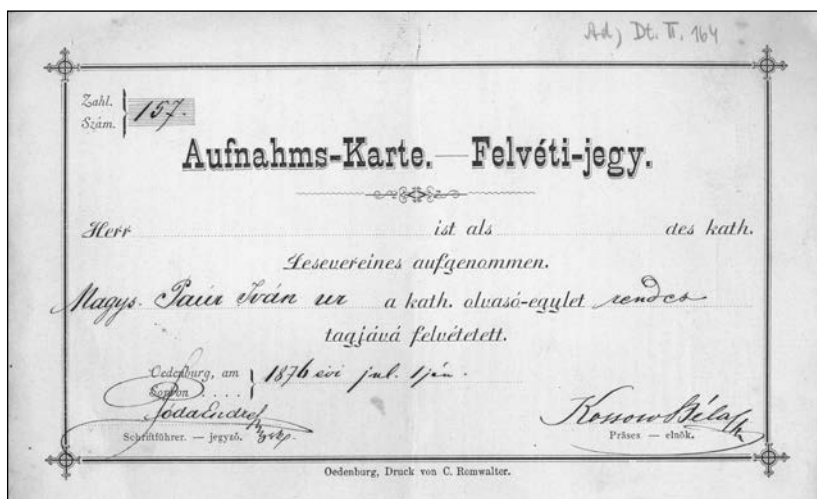 Ad, Dt. II. 164
Zahl. 157.
Szám.
Aufnahms-Karte. — Felvéti-jegy.
Herr ist als des kath.
Lesevereines aufgenommen.
Nagys. Paúr Iván ur a kath. olvasó-egylet rendes
tagjává felvétetett.
Oedenburg, am 1876 évi jul. 1jén.
Sopron
Póda Endre Kossow Béla
Schriftführer. — jegyző. Präses — elnök.
Oedenburg, Druck von C. Romwalter.